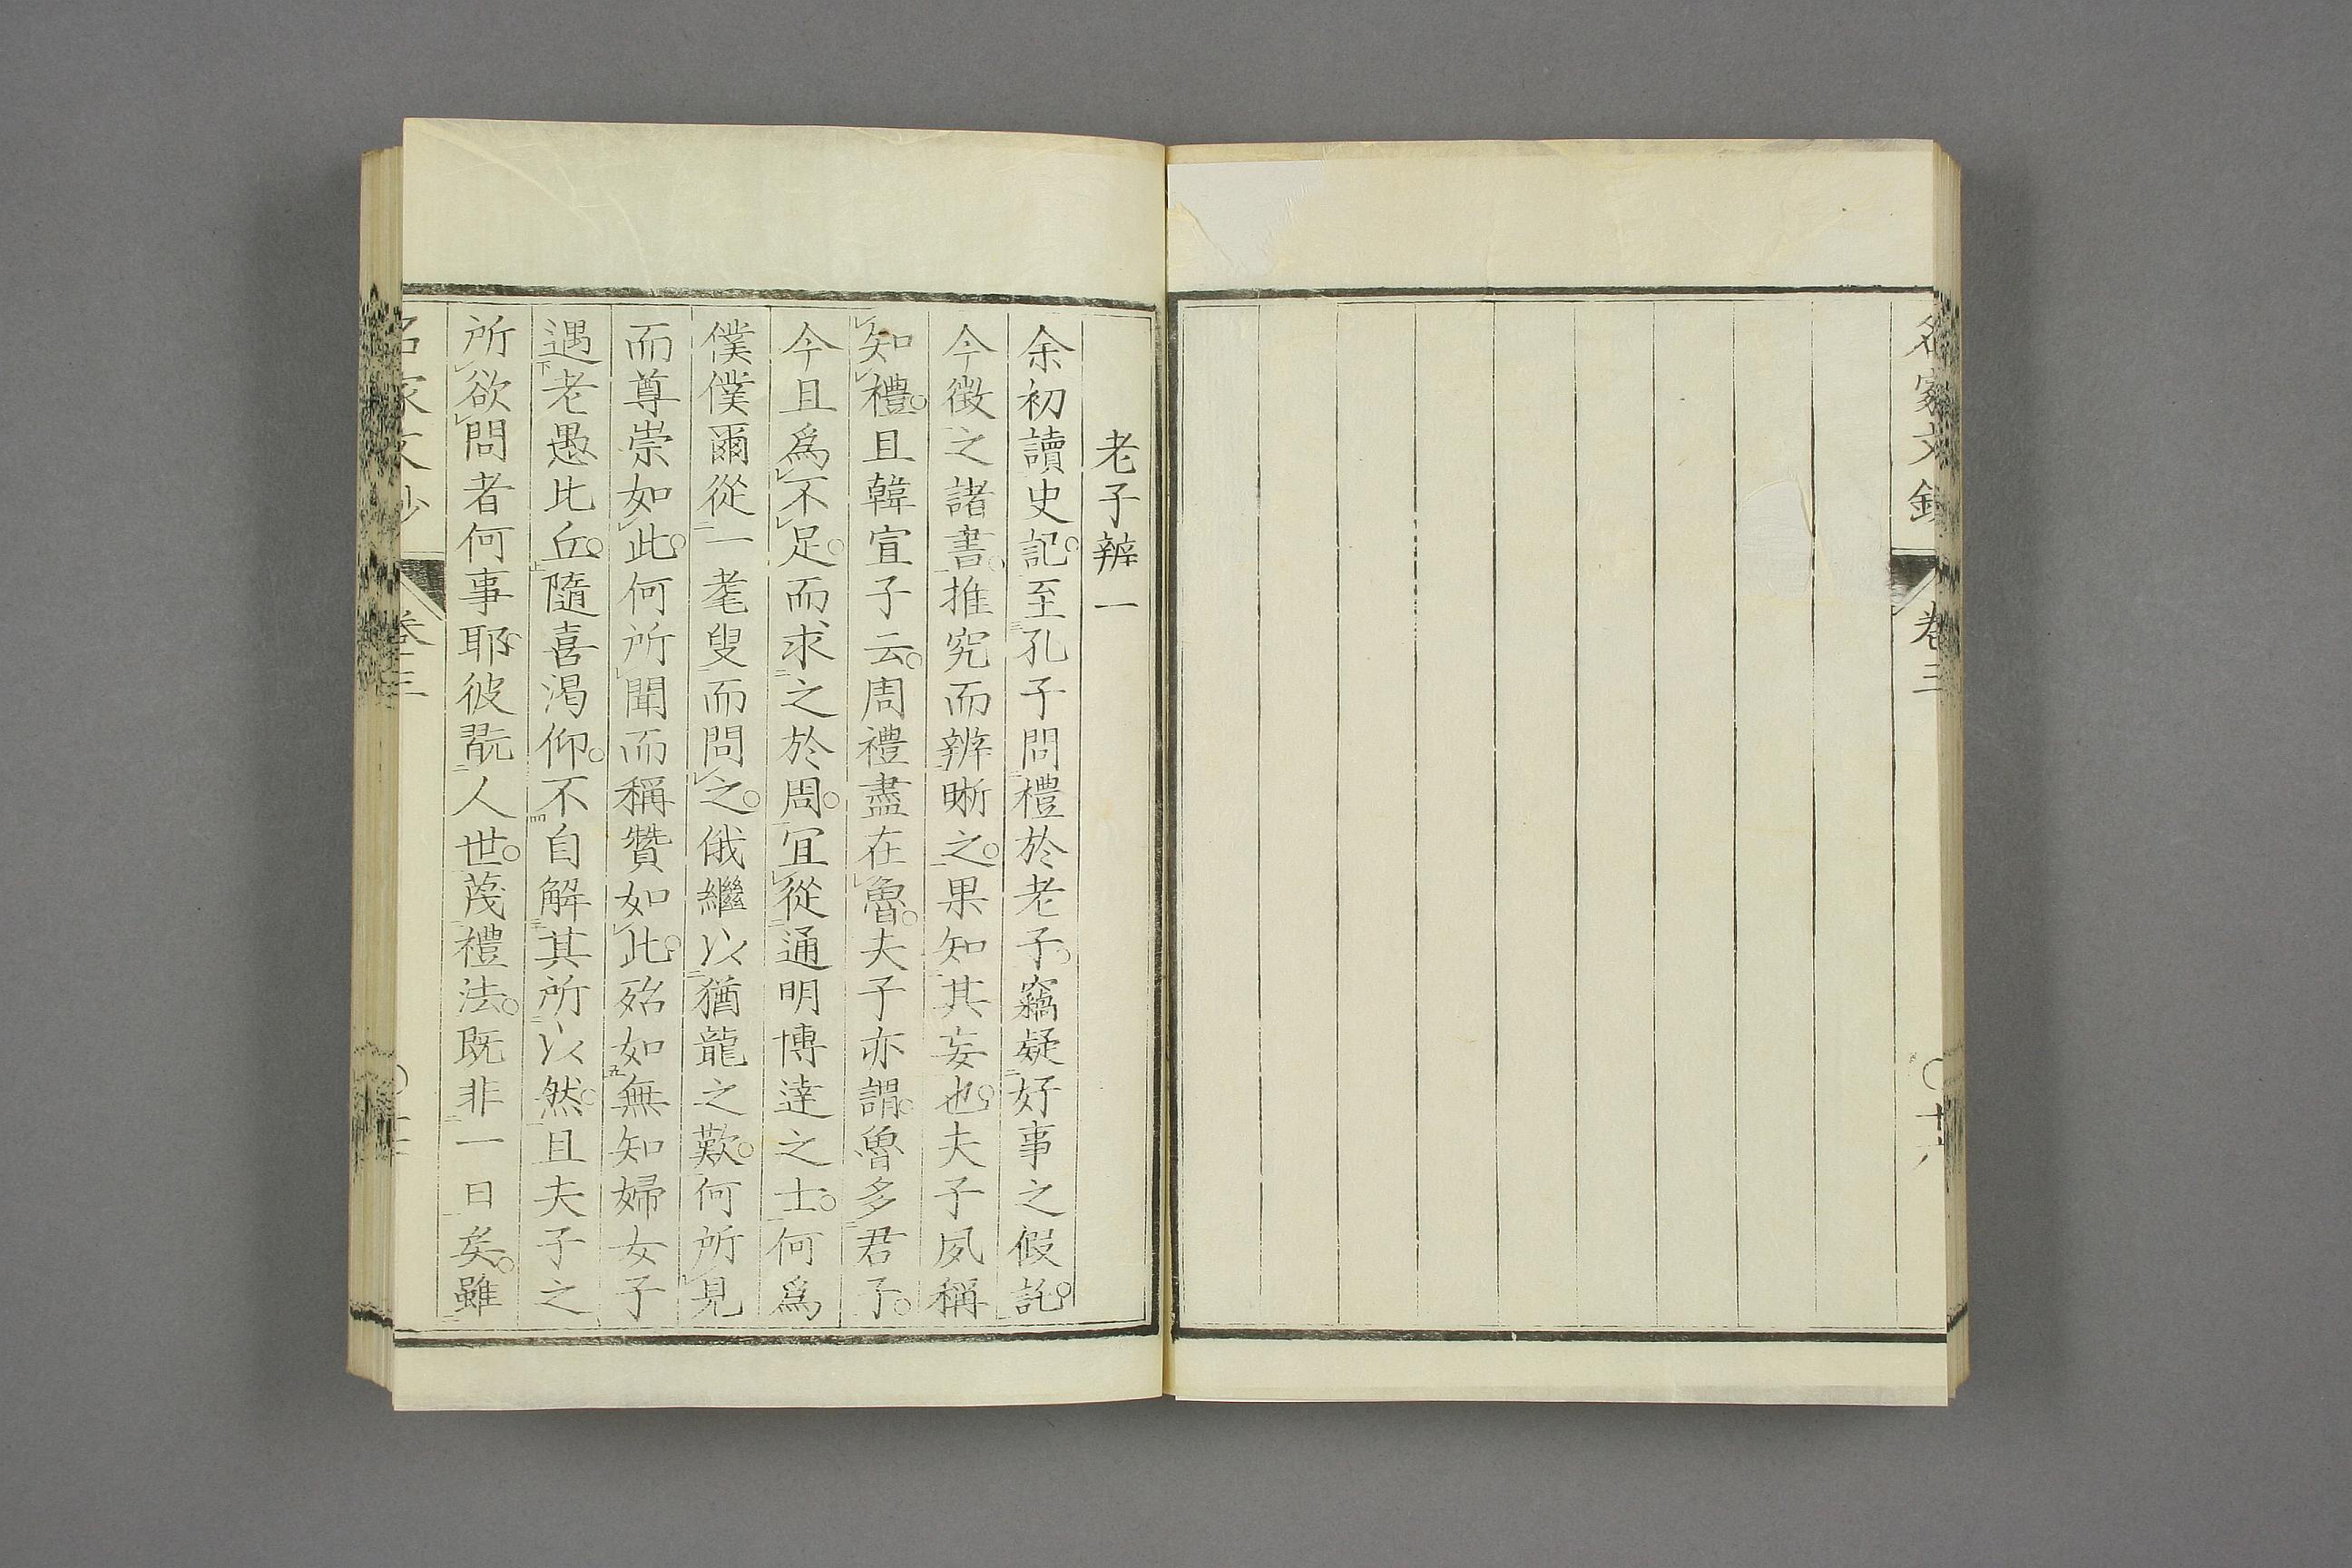 名家文鈔
卷三
〇十六
老子辨一
余初讀史記。至孔子問禮於老子。竊疑好事之假託。
今徵之諸書。推究而辨晰之。果知其妄也。夫子夙稱
知禮。且韓宣子云。周禮盡在魯。夫子亦謂。魯多君子。
今且爲不足。而求之於周。宜從通明博達之士。何爲
僕僕爾從一耄叟而問之。俄繼以猶龍之歎。何所見
而尊崇如此。何所聞而稱贊如此。殆如無知婦女子
遇老愚比丘。隨喜渴仰。不自解其所以然。且夫子之
所欲問者何事耶。彼翫人世。蔑禮法。既非一日矣。雖
名家文鈔
卷三